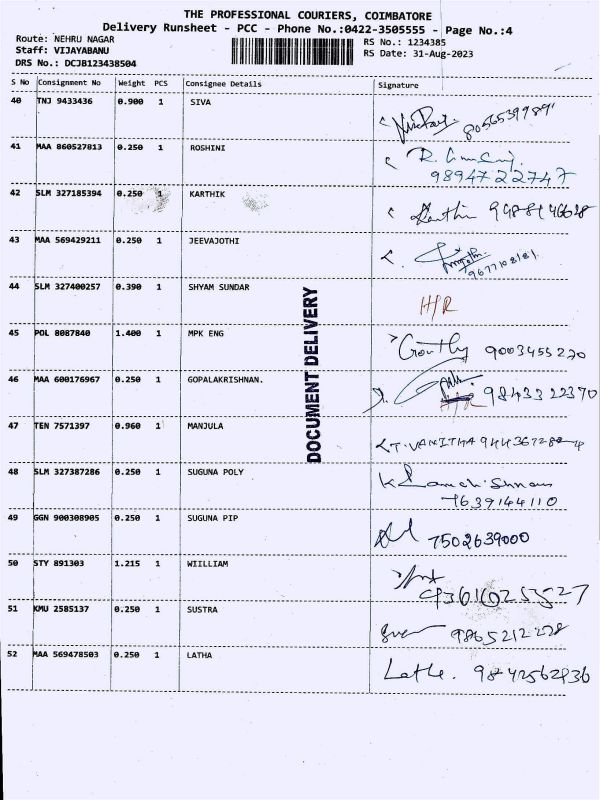 THE PROFESSIONAL COURIERS, COIMBATORE
Delivery Runsheet - PCC - Phone No.:0422-3505555 - Page No.:4
Route: NEHRU NAGAR
RS No.: 1234385
Staff: VIJAYABANU
RS Date: 31-Aug-2023
DRS No.: DCJB123438504
S No Consignment No Weight PCS Consignee Details Signature
40 TNJ 9433436 0.900 1 SIVA 8056539989
41 MAA 860527813 0.250 1 ROSHINI
9894722747
42 SLM 327185394 0.250 1 KARTHIK Karthik
43 MAA 569429211 0.250 1 JEEVAJOTHI
9677108181
44 SLM 327400257 0.390 1 SHYAM SUNDAR H/R
45 POL 8087840 1.400 1 MPK ENG 9003455220
46 MAA 600176967 0.250 1 GOPALAKRISHNAN. 9843322370
H/R
47 TEN 7571397 0.960 1 MANJULA T. VANITHA
48 SLM 327387286 0.250 1 SUGUNA POLY
7639144110
49 GGN 900308905 0.250 1 SUGUNA PIP 7502639000
50 STY 891303 1.215 1 WIILLIAM
51 KMU 2585137 0.250 1 SUSTRA 9865212228
52 MAA 569478503 0.250 1 LATHA
DOCUMENT DELIVERY